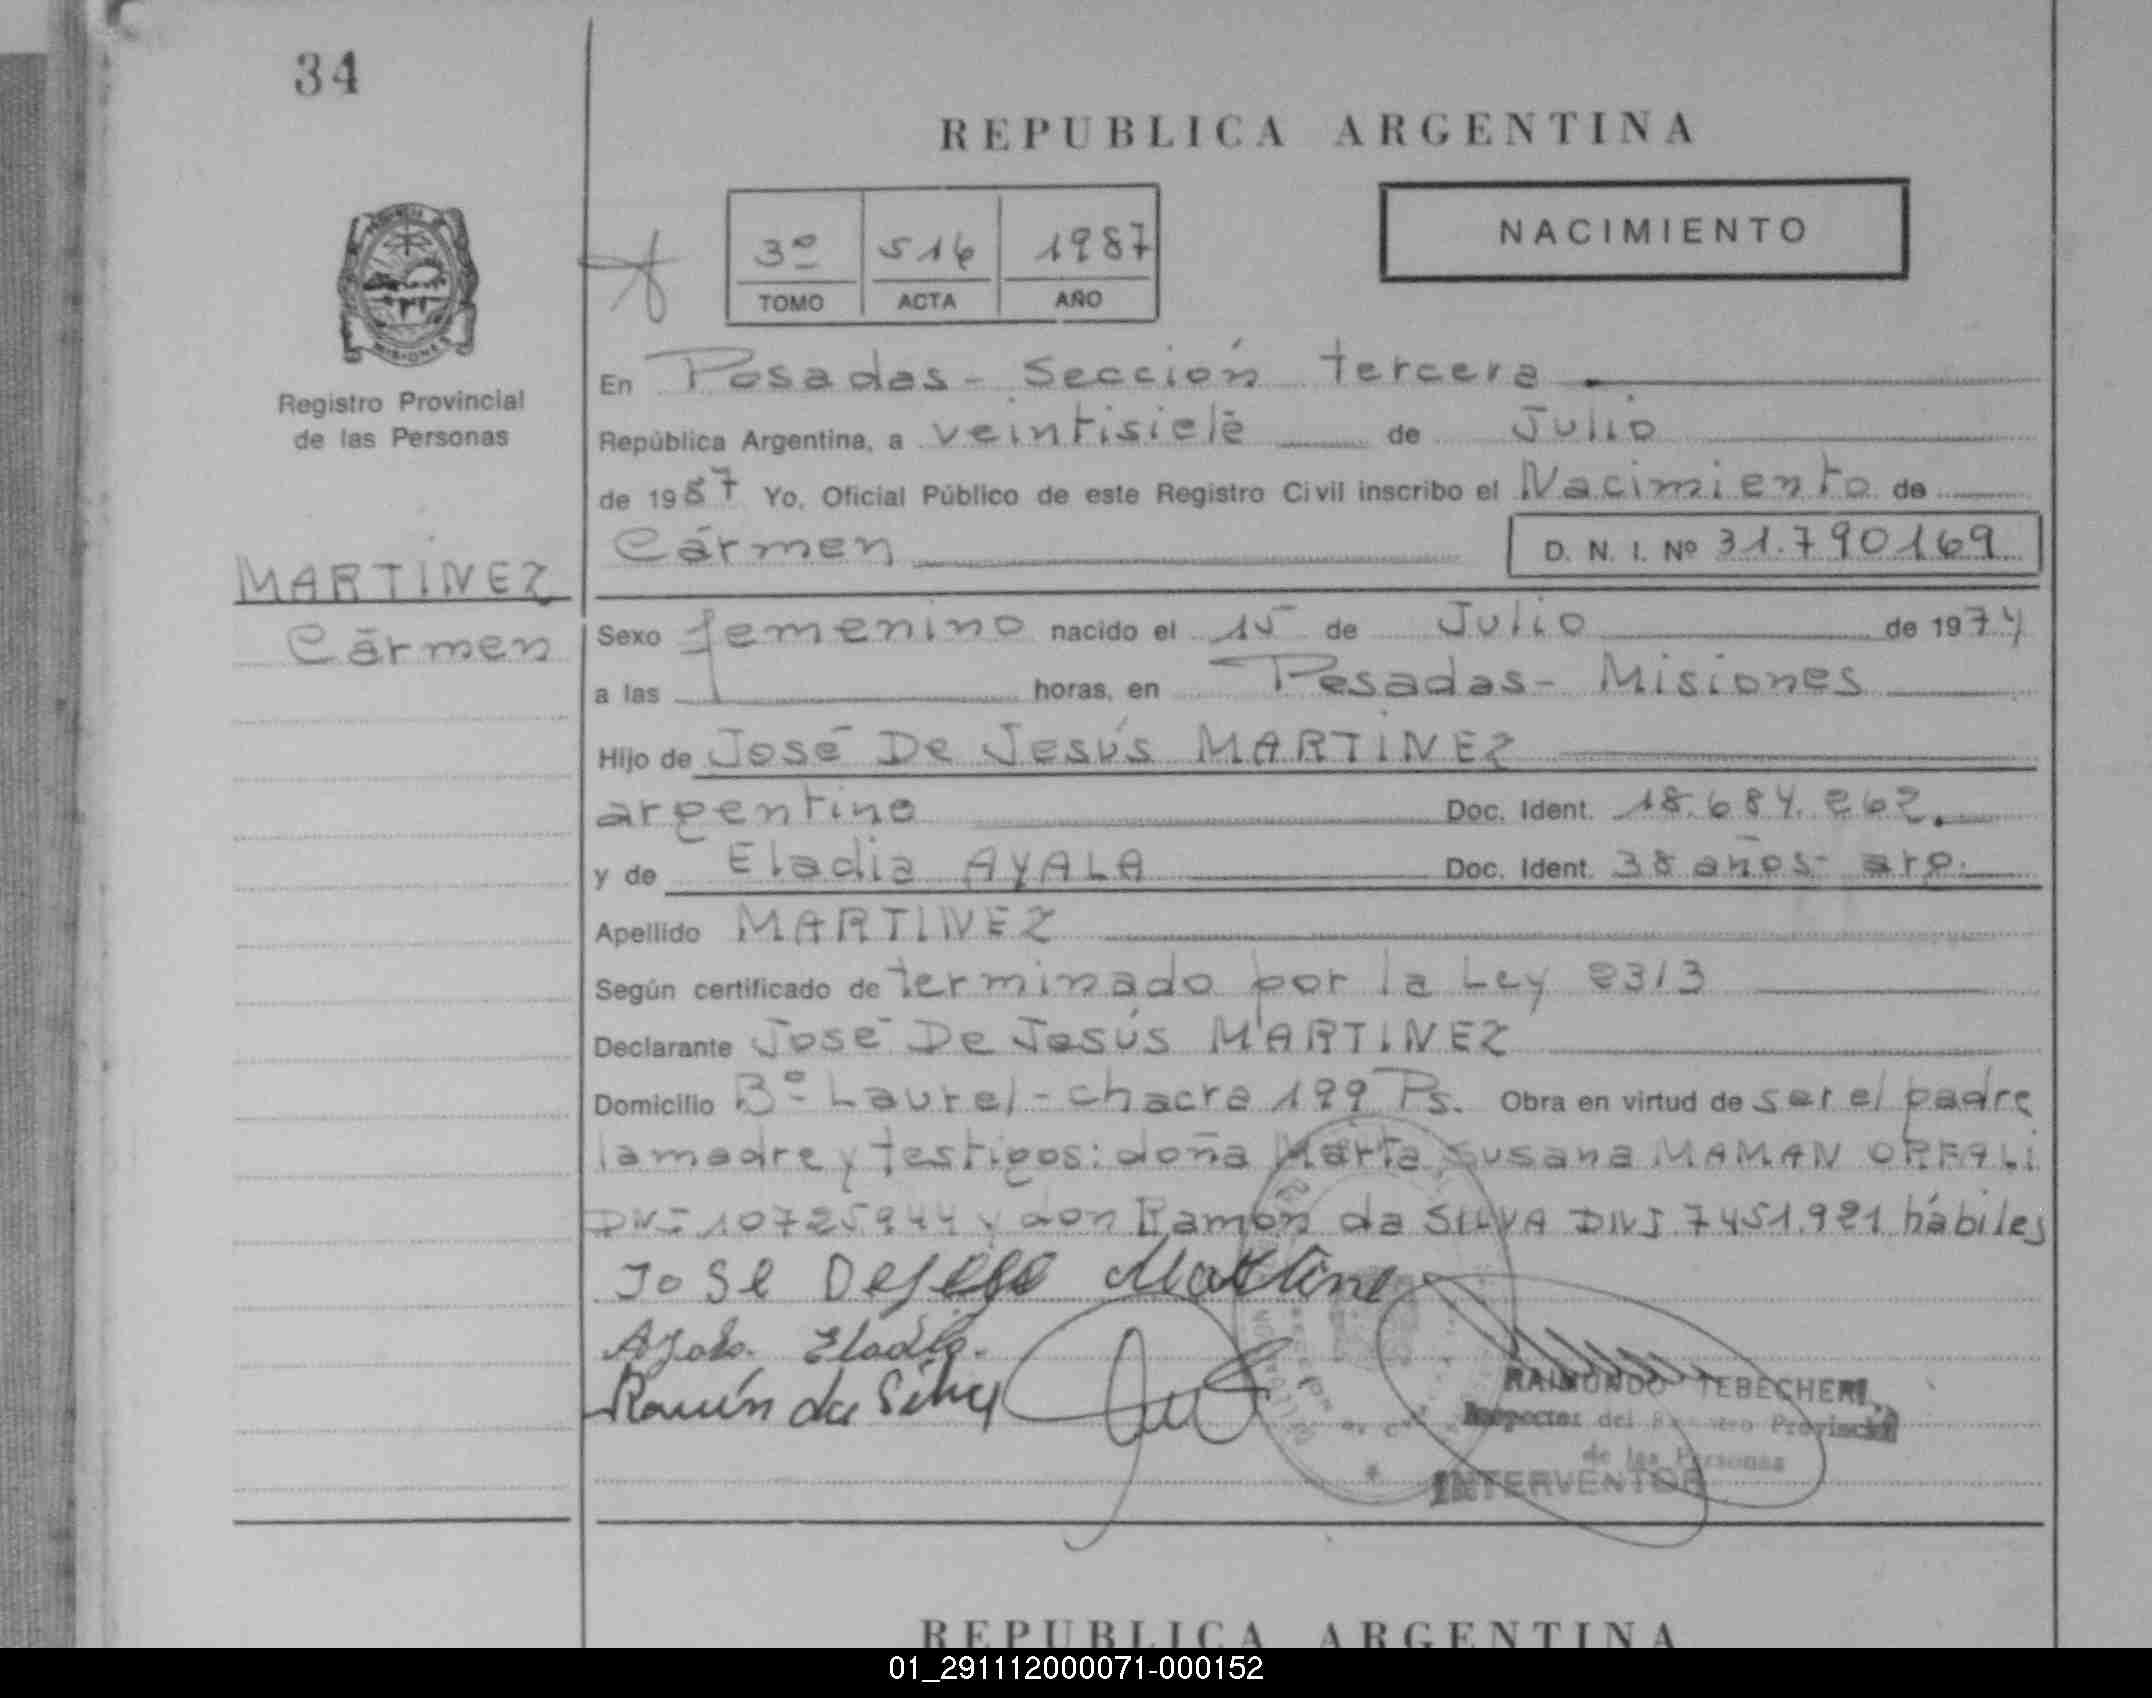 34
REPUBLICA ARGENTINA
NACIMIENTO
3º 516 1987
TOMO ACTA AÑO
MISIONES
Registro Provincial
de las Personas
MARTINEZ
Cármen
En Posadas - Sección tercera
República Argentina, a veintisiete de Julio
de 1987 Yo, Oficial Público de este Registro Civil inscribo el Nacimiento de
Cármen D. N. I. Nº 31.790169
Sexo femenino nacido el 15 de Julio de 1974
a las horas, en Posadas - Misiones
Hijo de José De Jesús MARTINEZ
argentino Doc. Ident. 18.684.262.
y de Eladia AYALA Doc. Ident. 38 años - arg.
Apellido MARTINEZ
Según certificado de terminado por la Ley 2313
Declarante José De Jesús MARTINEZ
Domicilio Bº Laurel - chacra 199 Ps. Obra en virtud de ser el padre
la madre y testigos: doña Marta Susana MAMAN ORFALI
DNI 10725944 y don Ramón da SILVA DNI 7451.921 hábiles
Jose De Martine
Ayala. Eladia.
Ramón da Silva
RAIMUNDO TEBECHERI
Inspector del Registro Provincial
de las Personas
INTERVENTOR
REPUBLICA ARGENTINA
01_291112000071-000152